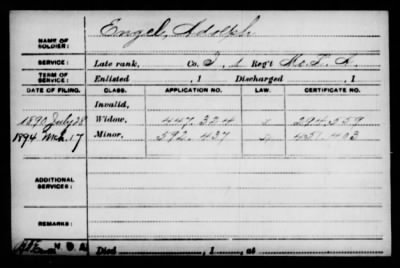 Engel, Adolph
NAME OF SOLDIER:
SERVICE: Late rank, Co. I, 1 Reg't Mo. I.
TERM OF SERVICE: Enlisted , 1 Discharged , 1
DATE OF FILING. CLASS. APPLICATION NO. LAW. CERTIFICATE NO.
Invalid,
1890 July 28 Widow, 447.324 294.559
1894 Mch. 17 Minor, 592.437 403
ADDITIONAL SERVICES:
REMARKS:
Died , 1 , at